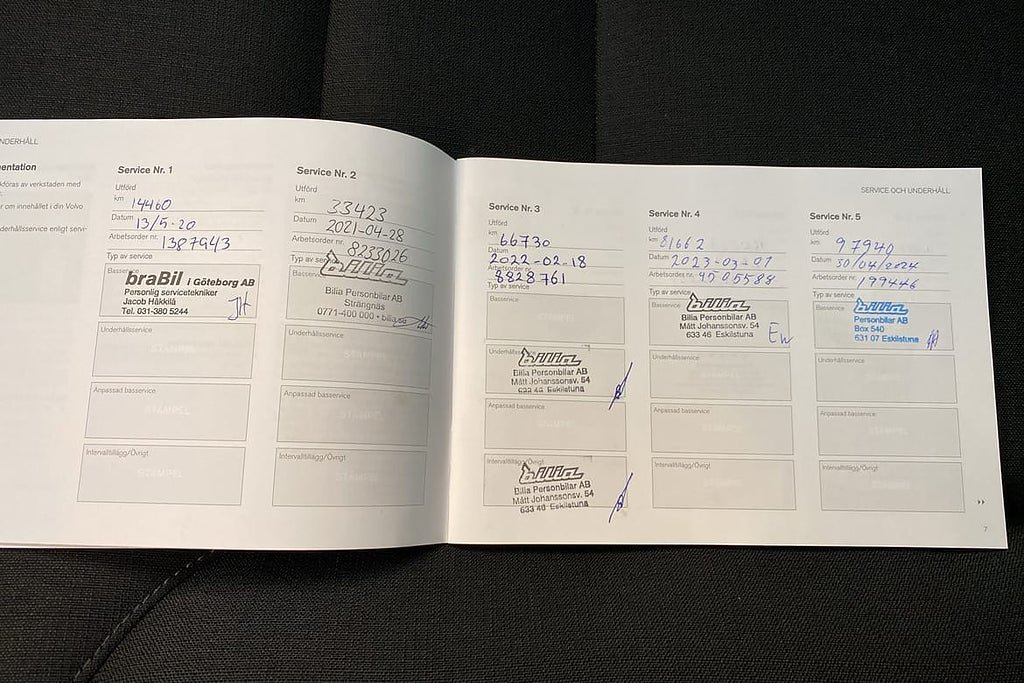 NDERHÅLL
entation
köras av verkstaden med
r om innehållet i din Volvo
derhållsservice enligt servi-
Service Nr. 1
Utförd
km 14460
Datum 13/5-20
Arbetsorder nr. 1387943
Typ av service
Basservice
braBil i Göteborg AB
Personlig servicetekniker
Jacob Häkkilä
Tel. 031-380 5244
JH
Underhållsservice
STAMPEL
Anpassad basservice
STAMPEL
Intervalltillägg/Övrigt
STAMPEL
Service Nr. 2
Utförd
km 33423
Datum 2021-04-28
Arbetsorder nr. 8233026
Typ av service
Basservice
bilia
Bilia Personbilar AB
Strängnäs
0771-400 000 • bilia.se
Underhållsservice
STAMPEL
Anpassad basservice
STAMPEL
Intervalltillägg/Övrigt
STAMPEL
Service Nr. 3
Utförd
km 66730
Datum 2022-02-18
Arbetsorder nr. 8828761
Typ av service
Basservice
STAMPEL
Underhållsservice
bilia
Bilia Personbilar AB
Mått Johanssonsv. 54
633 46 Eskilstuna
Anpassad basservice
STAMPEL
Intervalltillägg/Övrigt
bilia
Bilia Personbilar AB
Mått Johanssonsv. 54
633 46 Eskilstuna
SERVICE OCH UNDERHÅLL
Service Nr. 4
Utförd
km 81662
Datum 2023-03-07
Arbetsorder nr. 9505588
Typ av service
Basservice
bilia
Bilia Personbilar AB
Mått Johanssonsv. 54
633 46 Eskilstuna
Underhållsservice
STAMPEL
Anpassad basservice
STAMPEL
Intervalltillägg/Övrigt
STAMPEL
Service Nr. 5
Utförd
km 97940
Datum 30/04/2024
Arbetsorder nr. 199446
Typ av service
Basservice
bilia
Personbilar AB
Box 540
631 07 Eskilstuna
Underhållsservice
STAMPEL
Anpassad basservice
STAMPEL
Intervalltillägg/Övrigt
STAMPEL
7